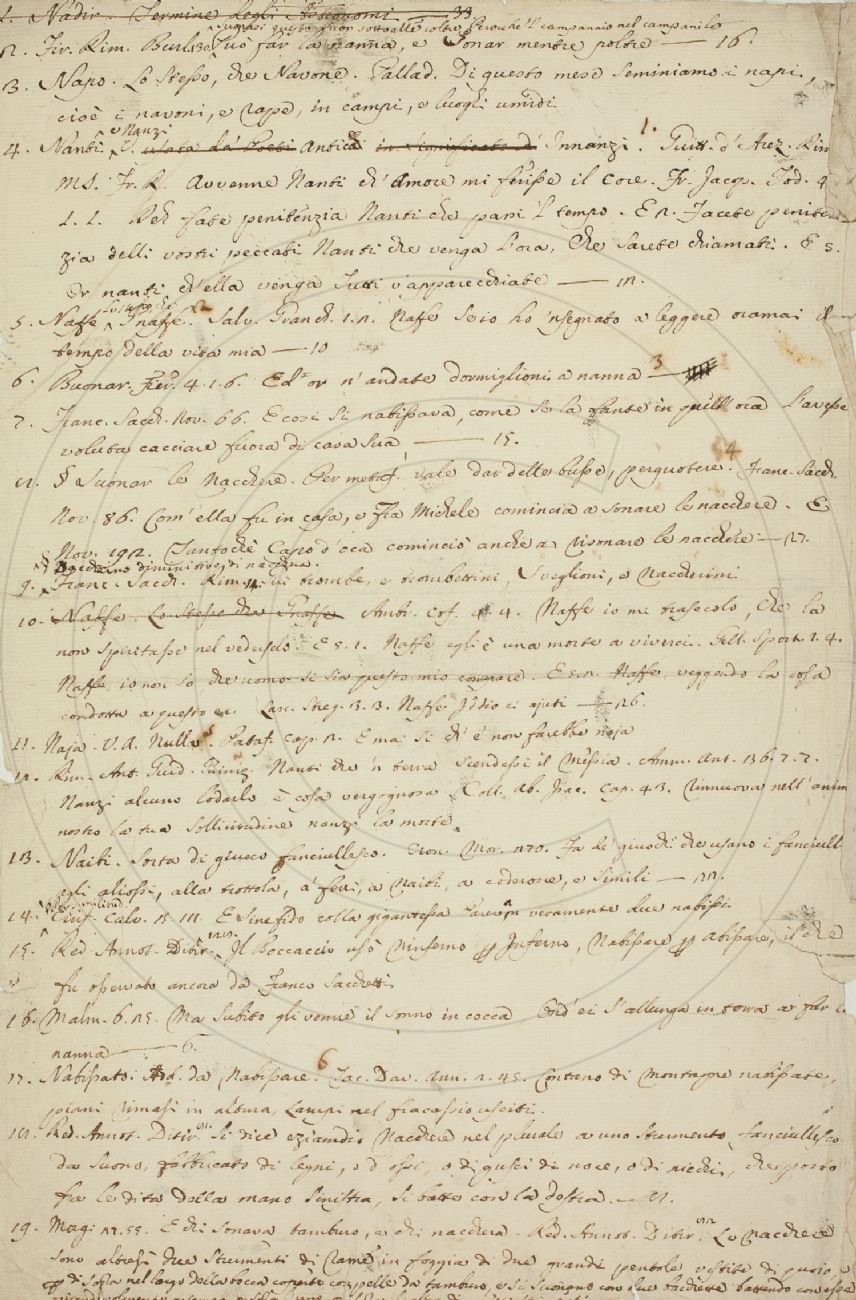 1. Nadir. Termine degli Astronomi — 33
Fir. Rim. Burl. 130 Suonasi questa a buon sotto alle coltre Perochè 'l campanaio nel campanile
2. Può far la nanna, e sonar mentre poltre — 16.
3. Napo. Lo stesso, che Navone. Pallad. Di questo mese seminiamo i napi,
cioè i navoni, e rape, in campi, e luoghi umidi
4. Nanti. e Nanzi usata da' Poeti antichi in significato d' Innanzi. Guitt. d' Arez. Rim
MS. Fr. R. Avvenne Nanti ch' Amore mi ferisse il core. Fr. Jacop. Tod. 4
1. 1. Deh fate penitenzia Nanti che passi 'l tempo. E 2. Facete peniten
zia delli vostri peccati Nanti che venga l'ora, Che sarete chiamati. E 5.
Or nanti ch'ella venga Tutti v'apparecchiate — 12.
5. Naffe Lo stesso che Gnaffe. Salv. Granch. 1. 2. Naffe se io ho 'nsegnato a leggere oramai il
tempo della vita mia — 10
6. Buonar. Fier. 4. 1. 6. Ed or n' andate dormiglioni a nanna — 3
7. Franc. Sacch. Nov. 66. E così si nabissava, come se la fante in quell' ora l'avesse
voluta cacciare fuora di casa sua, — 15.
§ Suonar le Nacchere. Per metaf. vale dar delle busse, perquotere. 4 Franc. Sacch.
Nov. 86. Com' ella fu in casa, e Fra Michele comincia a sonare le nacchere. E
Nov. 192. Tantochè Capo d' oca cominciò anche a risonare le nacchere — 27.
diminutivo di nacchera.
9. Franc. Sacch. Rim. Qui trombe, e trombettini, Sveglioni, e Naccherini
10. Naffe. Lo stesso che Gnaffe Ambr. Cof. 4. 4. Naffe io mi trasecolo, che la
non spiritasse nel vederselo. E 5. 1. Naffe egli è una morte a viverci. Gell. Sport. 1. 4.
Naffe, io non so che uomo si sia questo mio compare. E 5. 2. Naffe, veggendo la cosa
condotta a questo ec. Lasc. Streg. 3. 3. Naffe Iddio ci ajuti — 26.
11. Naja. V. A. Nulla. 5 Pataf. cap. 2. E mai si ch' è non sarebbe naja
12. Rim. Ant. Guid. Guiniz. Nanti che 'n terra scendesse il Messia. Amm. Ant. 136. 7. 7.
Nanzi alcuno lodarlo è cosa vergognosa. Coll. Ab. Isac. Cap. 43. Rinnuova nell' anim
nostro la tua sollicitudine nanzi la morte.
13. Naibi. Sorta di giuoco fanciullesco. Cron. Mor. 270. Fa de' giuochi che usano i fanciull
egli aliossi, alla trottola, a' ferri, a Naibi, a coderone, e simili — 22.
14. Ciriff. Calv. 3. 111. E Sinefido colla gigantessa Parevan veramente due nabissi.
15. Red. Annot. Ditir. Il Boccaccio usò Ninferno per Inferno, Nabissare per Abissare, il che
fu osservato ancora da Franco Sacchetti
16. Malm. 6. 25. Ma subito gli venne il sonno in cocca Ond' ei s'allunga in terra a far la
nanna — 6.
17. Nabissato. Add. da Nabissare. 6 Tac. Dav. Ann. 2. 45. Contano di montagne nabissate,
piani rimasi in altura, Lampi nel fracassio usciti.
Red. Annot. Ditir. Si dice eziamdio Nacchere nel plurale a uno strumento fanciullesco
da suono, fabbricato di legni, o d' ossi, o di gusci di noce, o di nicchi, che posto
fra le dita della mano sinistra, si batte con la destra.
19. Morg. 27. 55. E chi sonava tamburo, e chi nacchera. Red. Annot. Ditir. Le Nacchere
sono altresì due strumenti di rame in foggia di due grandi pentole vestite di cuoio, e
per di sopra nel largo della bocca coperte con pelle da tamburo, e si suonano con due bacchette battendo con esse